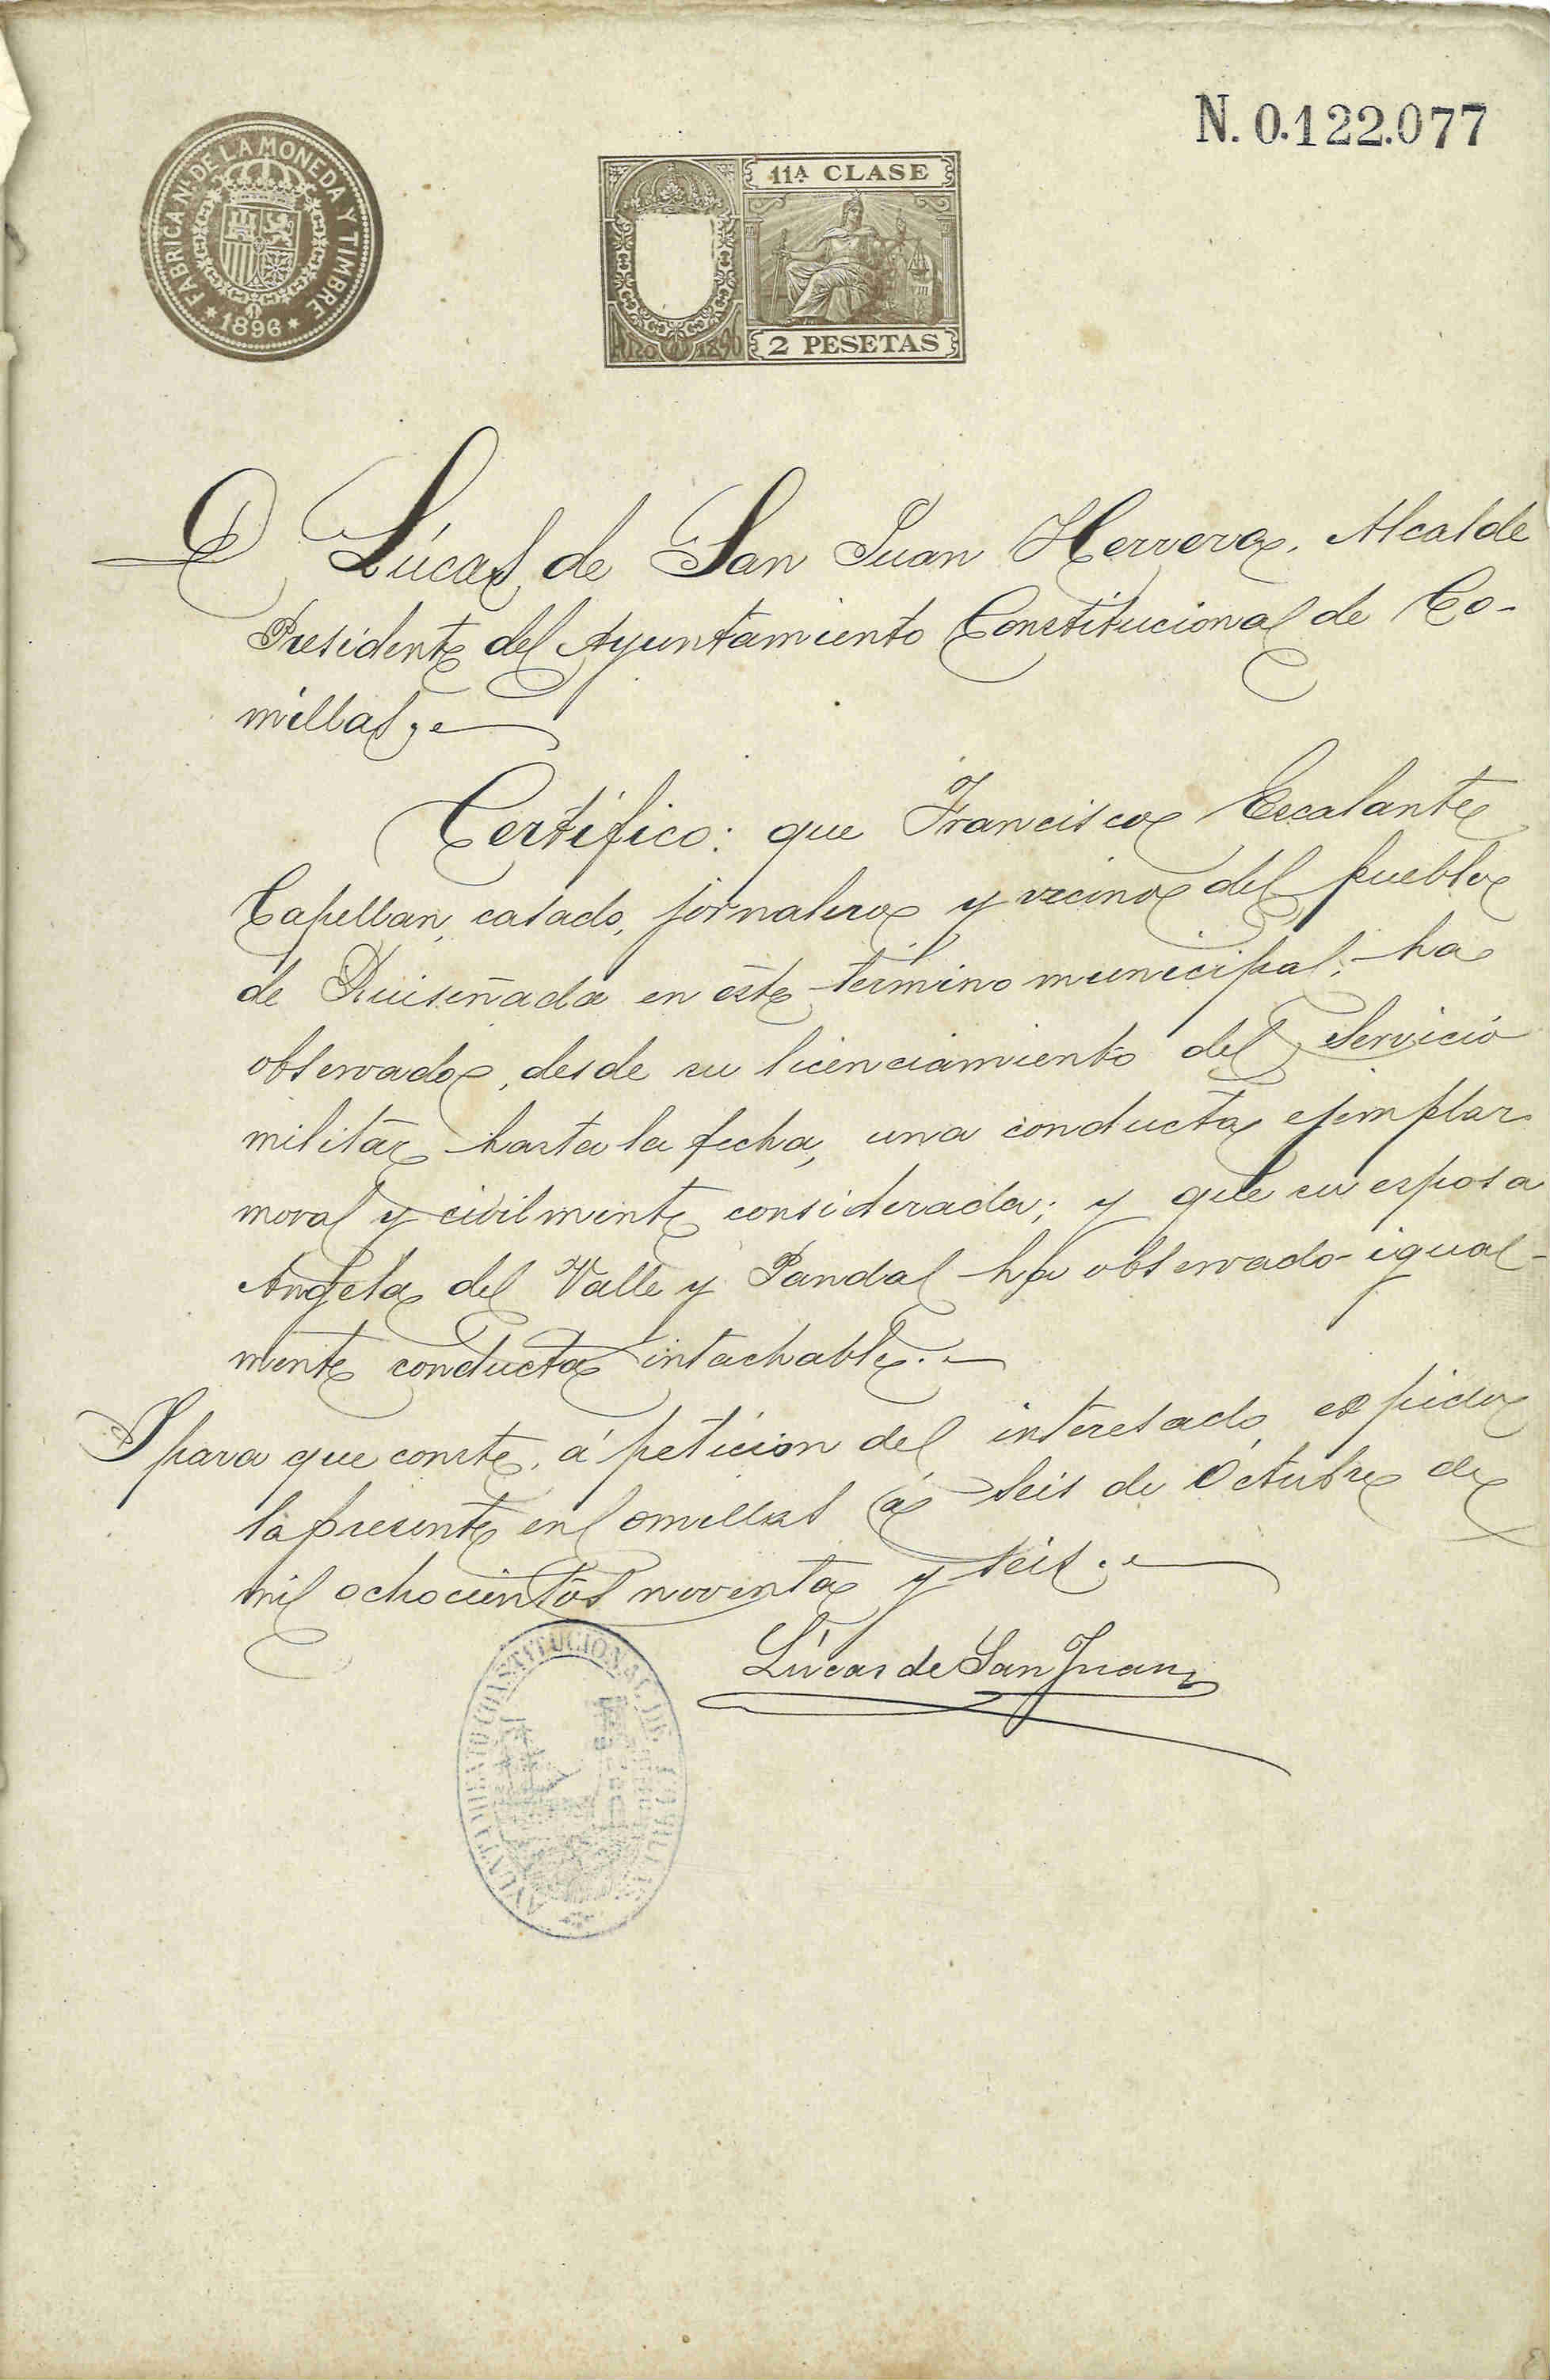 N. 0.122.077
FABRICA N. DE LA MONEDA Y TIMBRE
* 1896 *
11ª CLASE
2 PESETAS
D Lúcas de San Juan Herrera, Alcalde
Presidente del Ayuntamiento Constitucional de Co-
millas,
Certifico: que Francisco Escalante
Capellan, casado, jornalero y vecino del pueblo
de Ruiseñada en éste término municipal, ha
observado, desde su licenciamiento del Servicio
militar hasta la fecha, una conducta ejemplar
moral y civilmente considerada; y que su esposa
Angela del Valle y Pandal ha observado igual-
mente conducta intachable.
Y para que conste, á peticion del interesado, expido
la presente en Comillas á seis de Octubre de
mil ochocientos noventa y seis.
Lúcas de San Juan
AYUNTAMIENTO CONSTITUCIONAL DE COMILLAS